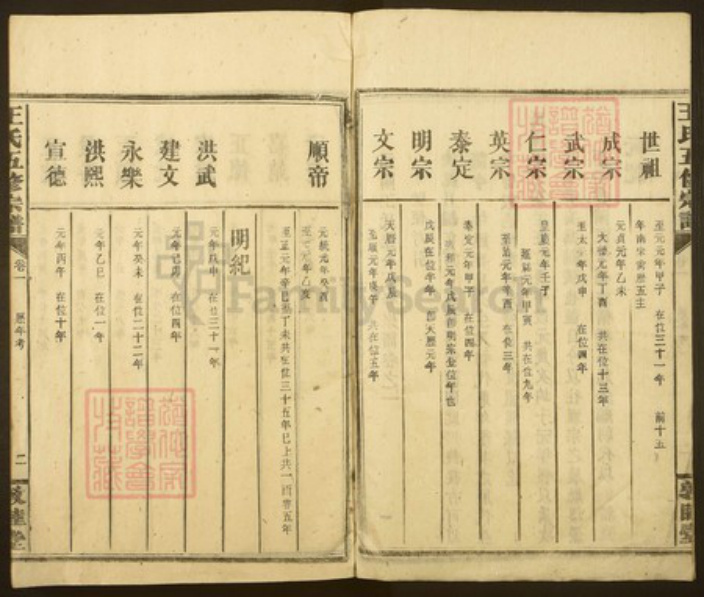 王氏五修宗譜
敦睦堂
世祖
至元元年甲子 在位三十一年 前十五
年南宋寅歷五主
成宗
元貞元年乙未
大德元年丁酉 共在位十三年
武宗
至大元年戊申 在位四年
仁宗
皇慶元年壬子
延祐元年甲寅 共在位九年
英宗
至治元年辛酉 在位三年
泰定
泰定元年甲子 在位四年
致和元年戊辰
明宗
戊辰在位半年 即天歷元年
文宗
天歷元年戊辰
至順元年庚午 共在位五年
順帝
元統元年癸酉
至元元年乙亥
至正元年辛巳至丁未共在位三十五年已上共一百零五年
明紀
洪武
元年戊申 在位三十一年
建文
元年己卯 在位四年
永樂
元年癸未 在位二十二年
洪熙
元年乙巳 在位一年
宣德
元年丙午 在位十年
王氏五修宗譜
卷一
歷年考
二
敦睦堂
FamilySearch